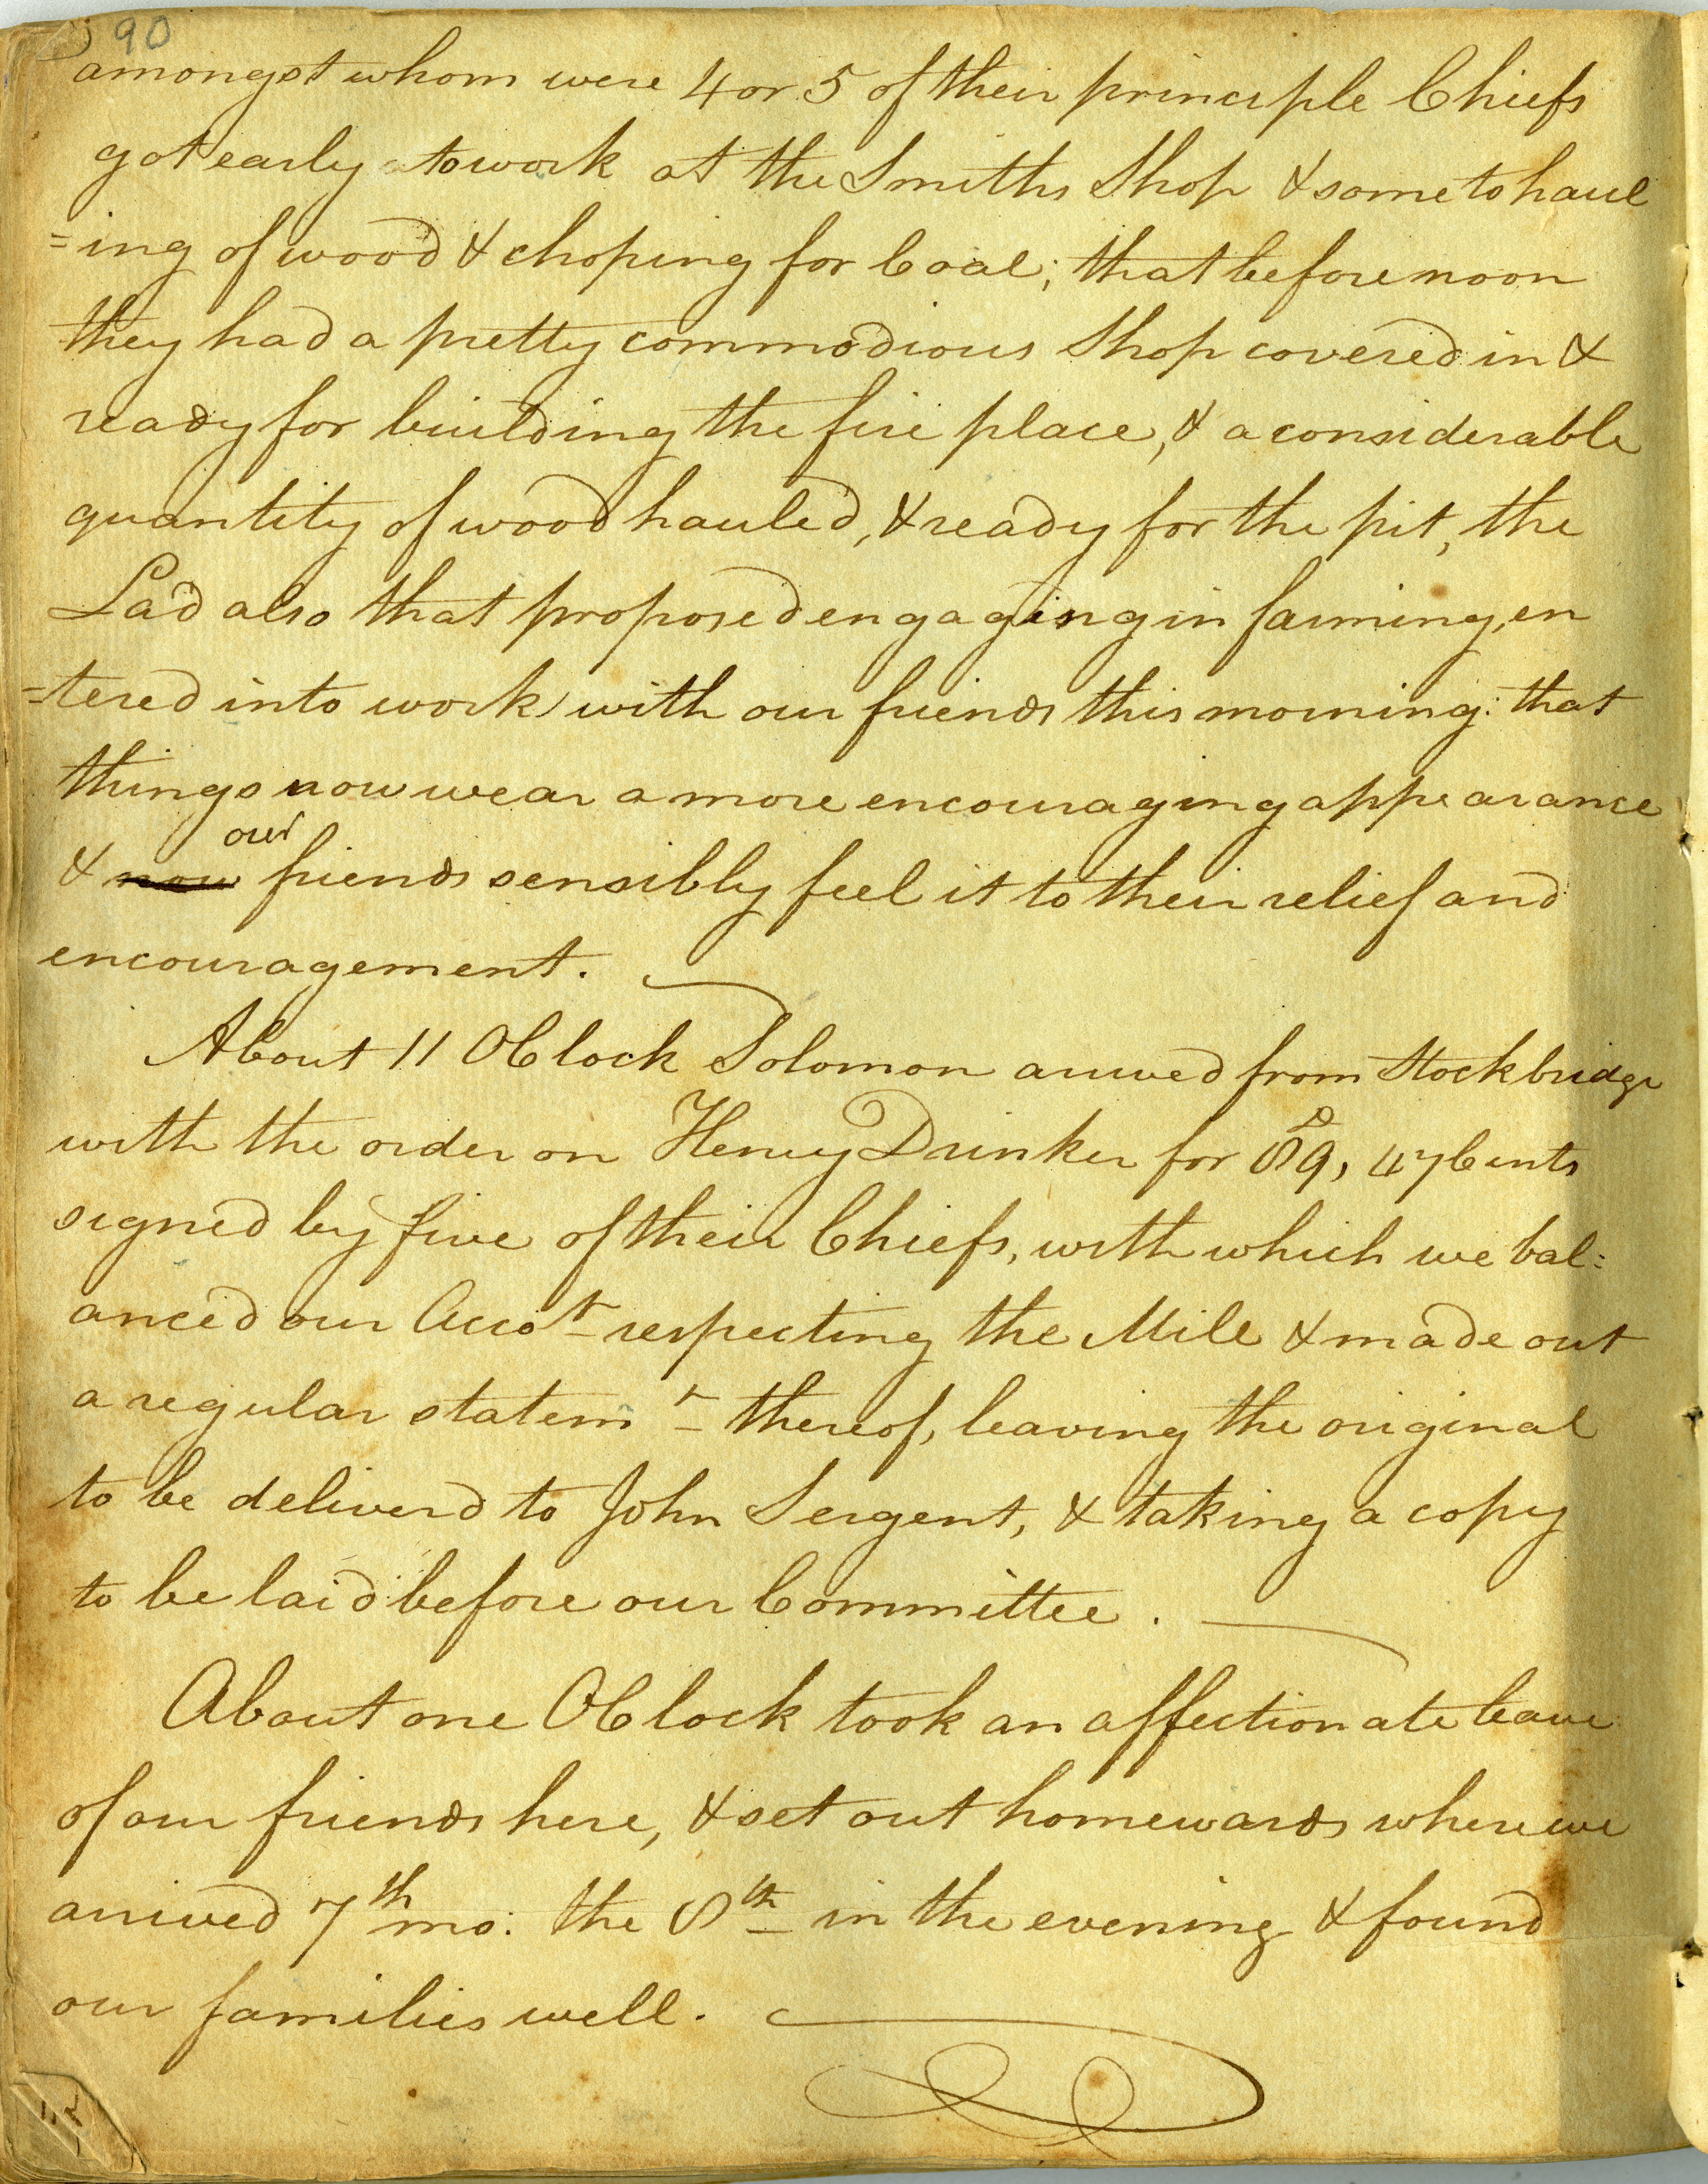 90
amongst whom were 4 or 5 of their principle Chiefs
got early to work at the Smiths Shop & some to haul
=ing of wood & choping for Coal; that before noon
they had a pretty commodious Shop covered in &
ready for building the fire place, & a considerable
quantity of wood hauled, & ready for the pit, the
Lad also that proposed engaging in farming, en
=tered into work with our friends this morning: that
things now wear a more encouraging appearance
our
& now friends sensibly feel it to their relief and
encouragement.
About 11 OClock Solomon arived from Stockbridge
with the order on Henry Drinker for 89, 47 Cents
signed by five of their Chiefs, with which we bal=
anced our Accot respecting the Mill & made out
a regular statemt thereof, leaving the original
to be deliverd to John Sergent, & taking a copy
to be laid before our Committee.
About one OClock took an affectionate leave
of our friends here, & set out homewards where we
arived 7th mo: the 8th in the evening & found
our families well.